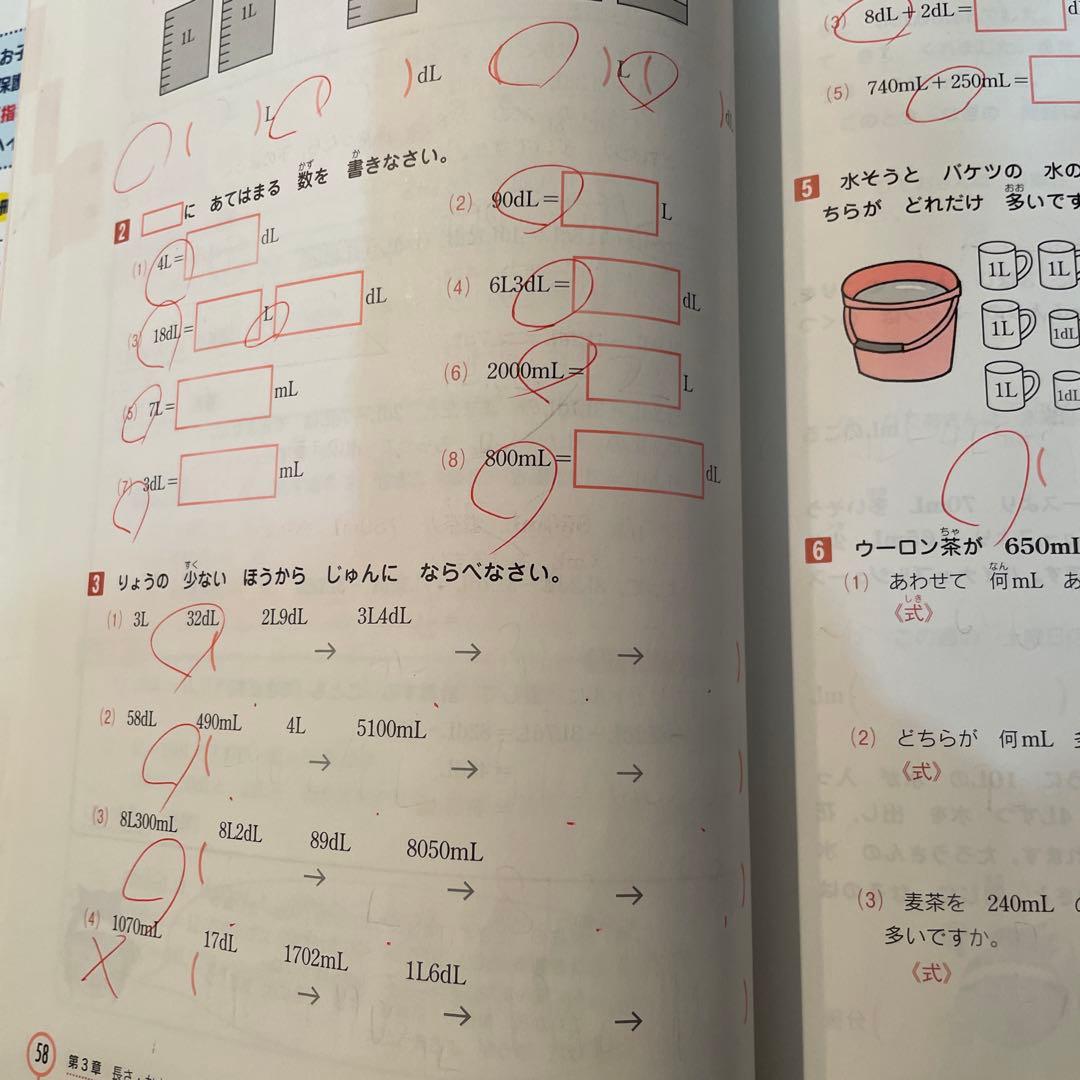 1L
1L
( )L ( )dL
( )L ( )dL
2 □に あてはまる 数を 書きなさい。
かず か
(1) 4L= dL
(2) 90dL= L
(3) 18dL= L dL
(4) 6L3dL= dL
(5) 7L= mL
(6) 2000mL= L
(7) 3dL= mL
(8) 800mL= dL
3 りょうの 少ない ほうから じゅんに ならべなさい。
すく
(1) 3L 32dL 2L9dL 3L4dL
( → → → )
(2) 58dL 490mL 4L 5100mL
( → → → )
(3) 8L300mL 8L2dL 89dL 8050mL
( → → → )
(4) 1070mL 17dL 1702mL 1L6dL
( → → → )
58 第3章 長さ・か
(3) 8dL+2dL=
(5) 740mL+250mL=
5 水そうと バケツの 水の
ちらが どれだけ 多いです
おお
1L 1L
1L 1dL
1L 1dL
(
6 ウーロン茶が 650mL
ちゃ
(1) あわせて 何mL あ
なん
《式》
しき
(2) どちらが 何mL 多
《式》
(3) 麦茶を 240mL の
多いですか。
《式》